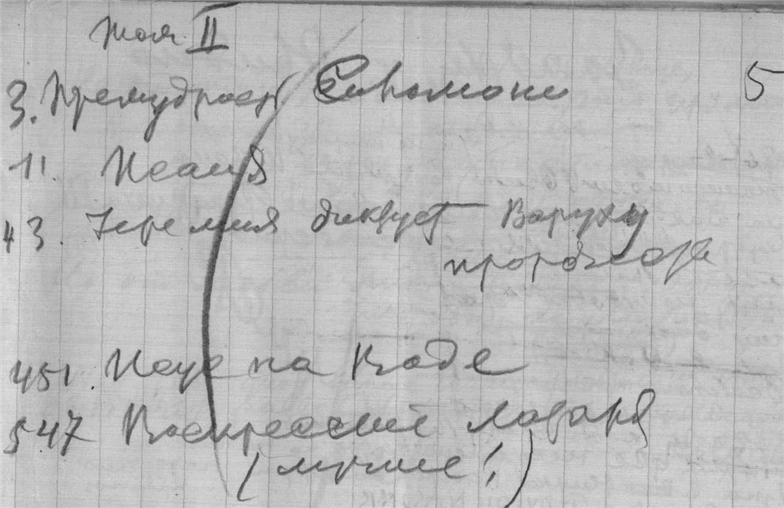 Том II
5
3. Премудрость Соломона
11. Исаия
43. Иеремия диктует Варуху
пророчества
451. Иисус на воде
547 Воскресение Лазаря
(лучше!)